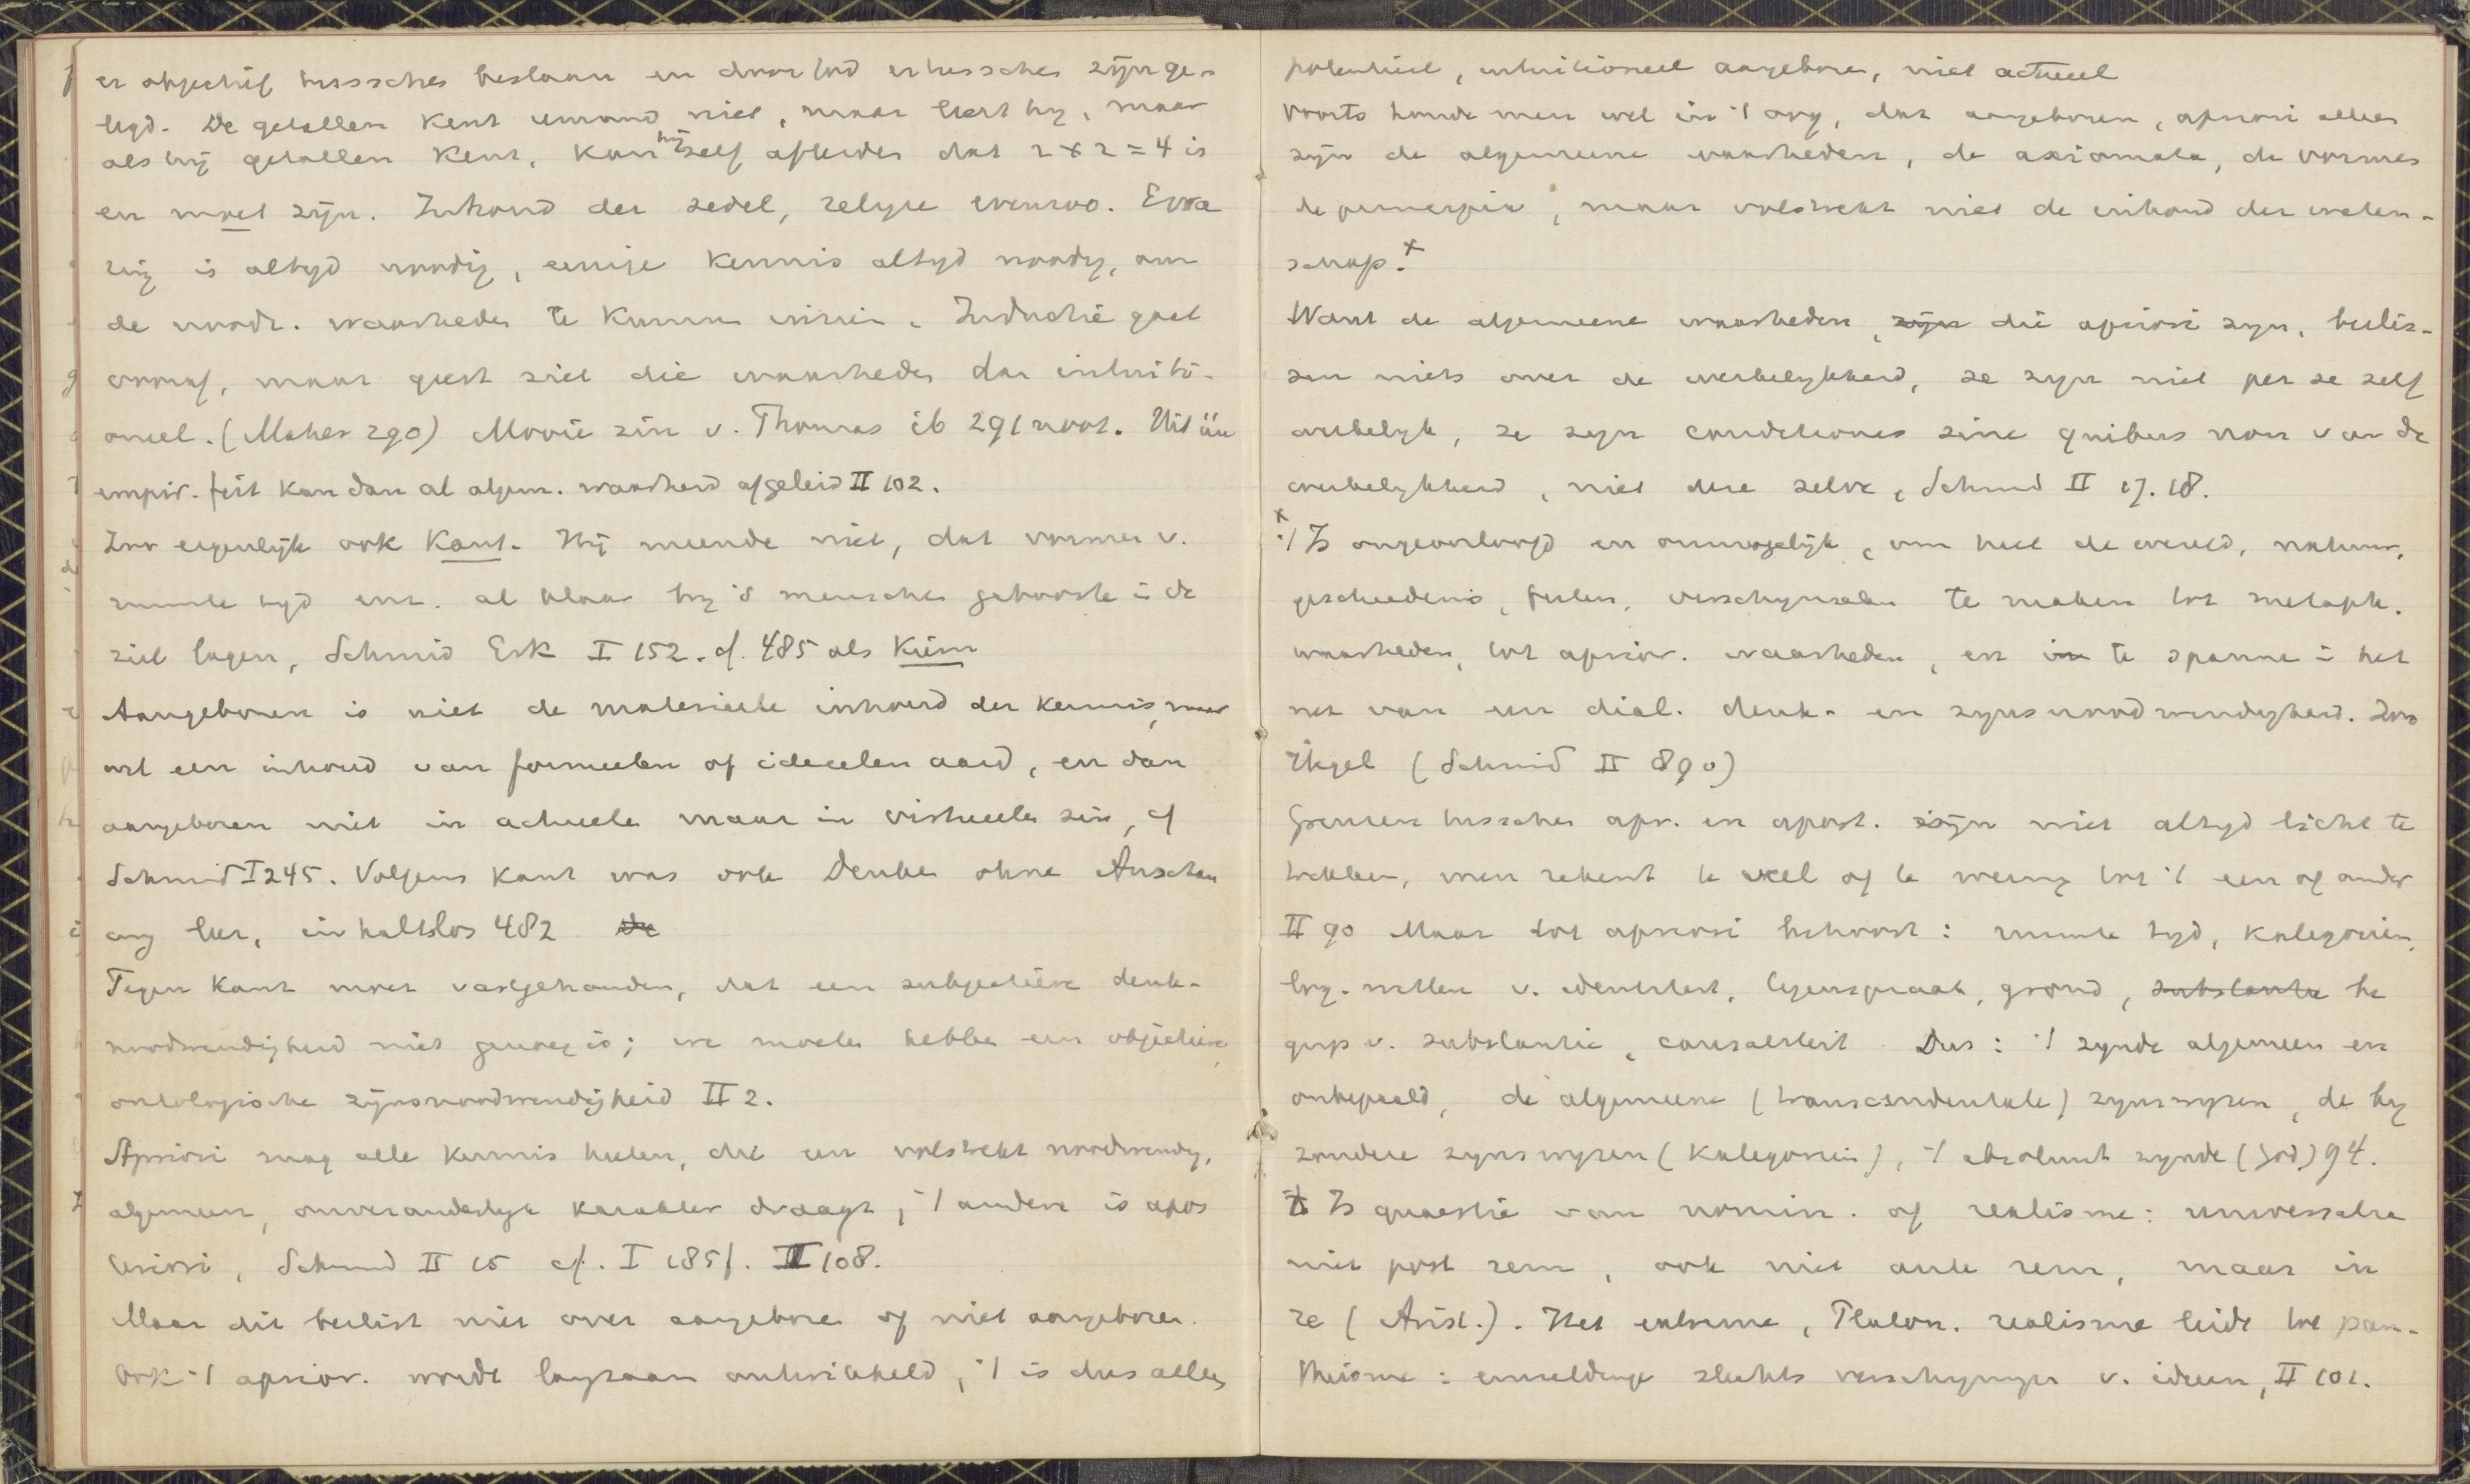 er objectief tusschen bestaan en door God ertusschen zijn ge-
legd. De getallen kent iemand niet, maar leert hij, maar
als hij getallen kent, kan hij zelf afleiden dat 2 x 2 = 4 is
en moet zijn. Inhoud der zedel, relig. evenzoo. Erva
ring is altyd noodig, eenige kennis altyd noodig, om
de noodz. waarheden te kunnen inzien. Inductie gaat
vooraf, maar geest ziet die waarheden dan intuiti-
oneel. (Maher 290) Mooie zin v. Thomas ib 291 noot. Uit één
empir. feit kan dan al algem. waarheid afgeleid II 102.
Zoo eigenlijk ook Kant. Hij meende niet, dat vormen v.
ruimte tyd enz. al klaar by 's menschen geboorte in de
ziel lagen, Schmid Erk I 152. cf. 485 als Kiem
Aangeboren is niet de materieele inhoud der kennis, maar
wel een inhoud van formeelen of ideeelen aard, en dan
aangeboren niet in actueele maar in virtueele zin, cf
Schmid I 245. Volgens Kant was ook Denken ohne Anschau
ung leer, inhaltslos 482 De
Tegen Kant moet vastgehouden, dat een subjectieve denk-
noodwendigheid niet genoeg is; we moeten hebben een objectieve,
ontologische zijnsnoodwendigheid II 2.
Apriori mag alle kennis heeten, die een volstrekt noodwendig,
algemeen, onveranderlyk karakter draagt, 't andere is apos
teriori, Schmid II 15 cf. I 185f. II 108.
Maar dit beslist niet over aangeboren of niet aangeboren.
Ook 't aprior. wordt langzaam ontwikkeld, 't is dus alleen
potentieel, intuitioneel aangeboren, niet actueel
Voorts houde men wel in 't oog, dat aangeboren, apriori alleen
zijn de algemeene waarheden, de axiomata, de vormen
de principia, maar volstrekt niet de inhoud der weten-
schap. x
Want de algemeene waarheden, zijn die apriori zyn, beslis-
sen niets over de werkelykheid, ze zyn niet per se zelf
werkelyk, ze zyn conditiones sine quibus non van de
werkelykheid, niet deze zelve, Schmid II 17. 18.
x 't Is ongeoorloofd en onmogelijk, om heel de wereld, natuur,
geschiedenis, feiten, verschynselen te maken tot metaph.
waarheden, tot aprior. waarheden, en in te spannen in het
net van een dial. denk- en zynsnoodwendigheid. Zoo
Hegel (Schmid II 89 v)
Grenzen tusschen apr. en apost. zijn niet altyd licht te
trekken, men rekent te veel of te weinig tot 't een of ander
II 90 Maar tot apriori behoort: ruimte tyd, kategorieën,
log. wetten v. identiteit, tegenspraak, grond, substantie be
grip v. substantie, causaliteit. Dus: 't zynde algemeen en
onbepaald, de algemeene (transcendentale) zynswyzen, de by
zondere zynswyzen (Kategorieën), 't absoluut zynde (God) 94.
't Is quaestie van nomin. of realisme: universalia
niet post rem, ook niet ante rem, maar in
re (Arist.). Het extreme, Platon. realisme leidt tot pan-
theisme: enkeldinge slechts verschyningen v. ideeen, II 101.